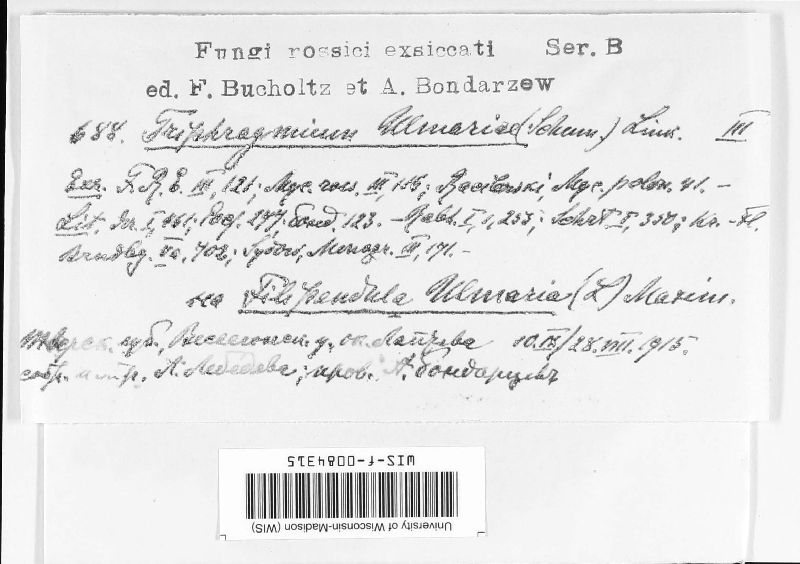 Fungi rossici exsiccati Ser. B
ed. F. Bucholtz et A. Bondarzew
688. Triphragmium Ulmariae (Schum.) Link. III
Exs. F. R. E. III, 121; Myc. ross. III, 115; Raciborski, Myc. polon. 41. -
Lit. I, 861; 277; Бонд. 123. - Rabh. I, 1, 233; Schröt I, 350; Kr.-Fl.
Brndbg. Va, 702; Sydow, Monogr. III, 171. -
на Filipendula Ulmaria (L) Maxim.
Тверск. губ., Весьегонск. у., ок. 10.IX/28.VIII.1915.
собр. А. Лебедева; пров. А. Бондарцевъ
WIS-f-0084315
University of Wisconsin-Madison (WIS)